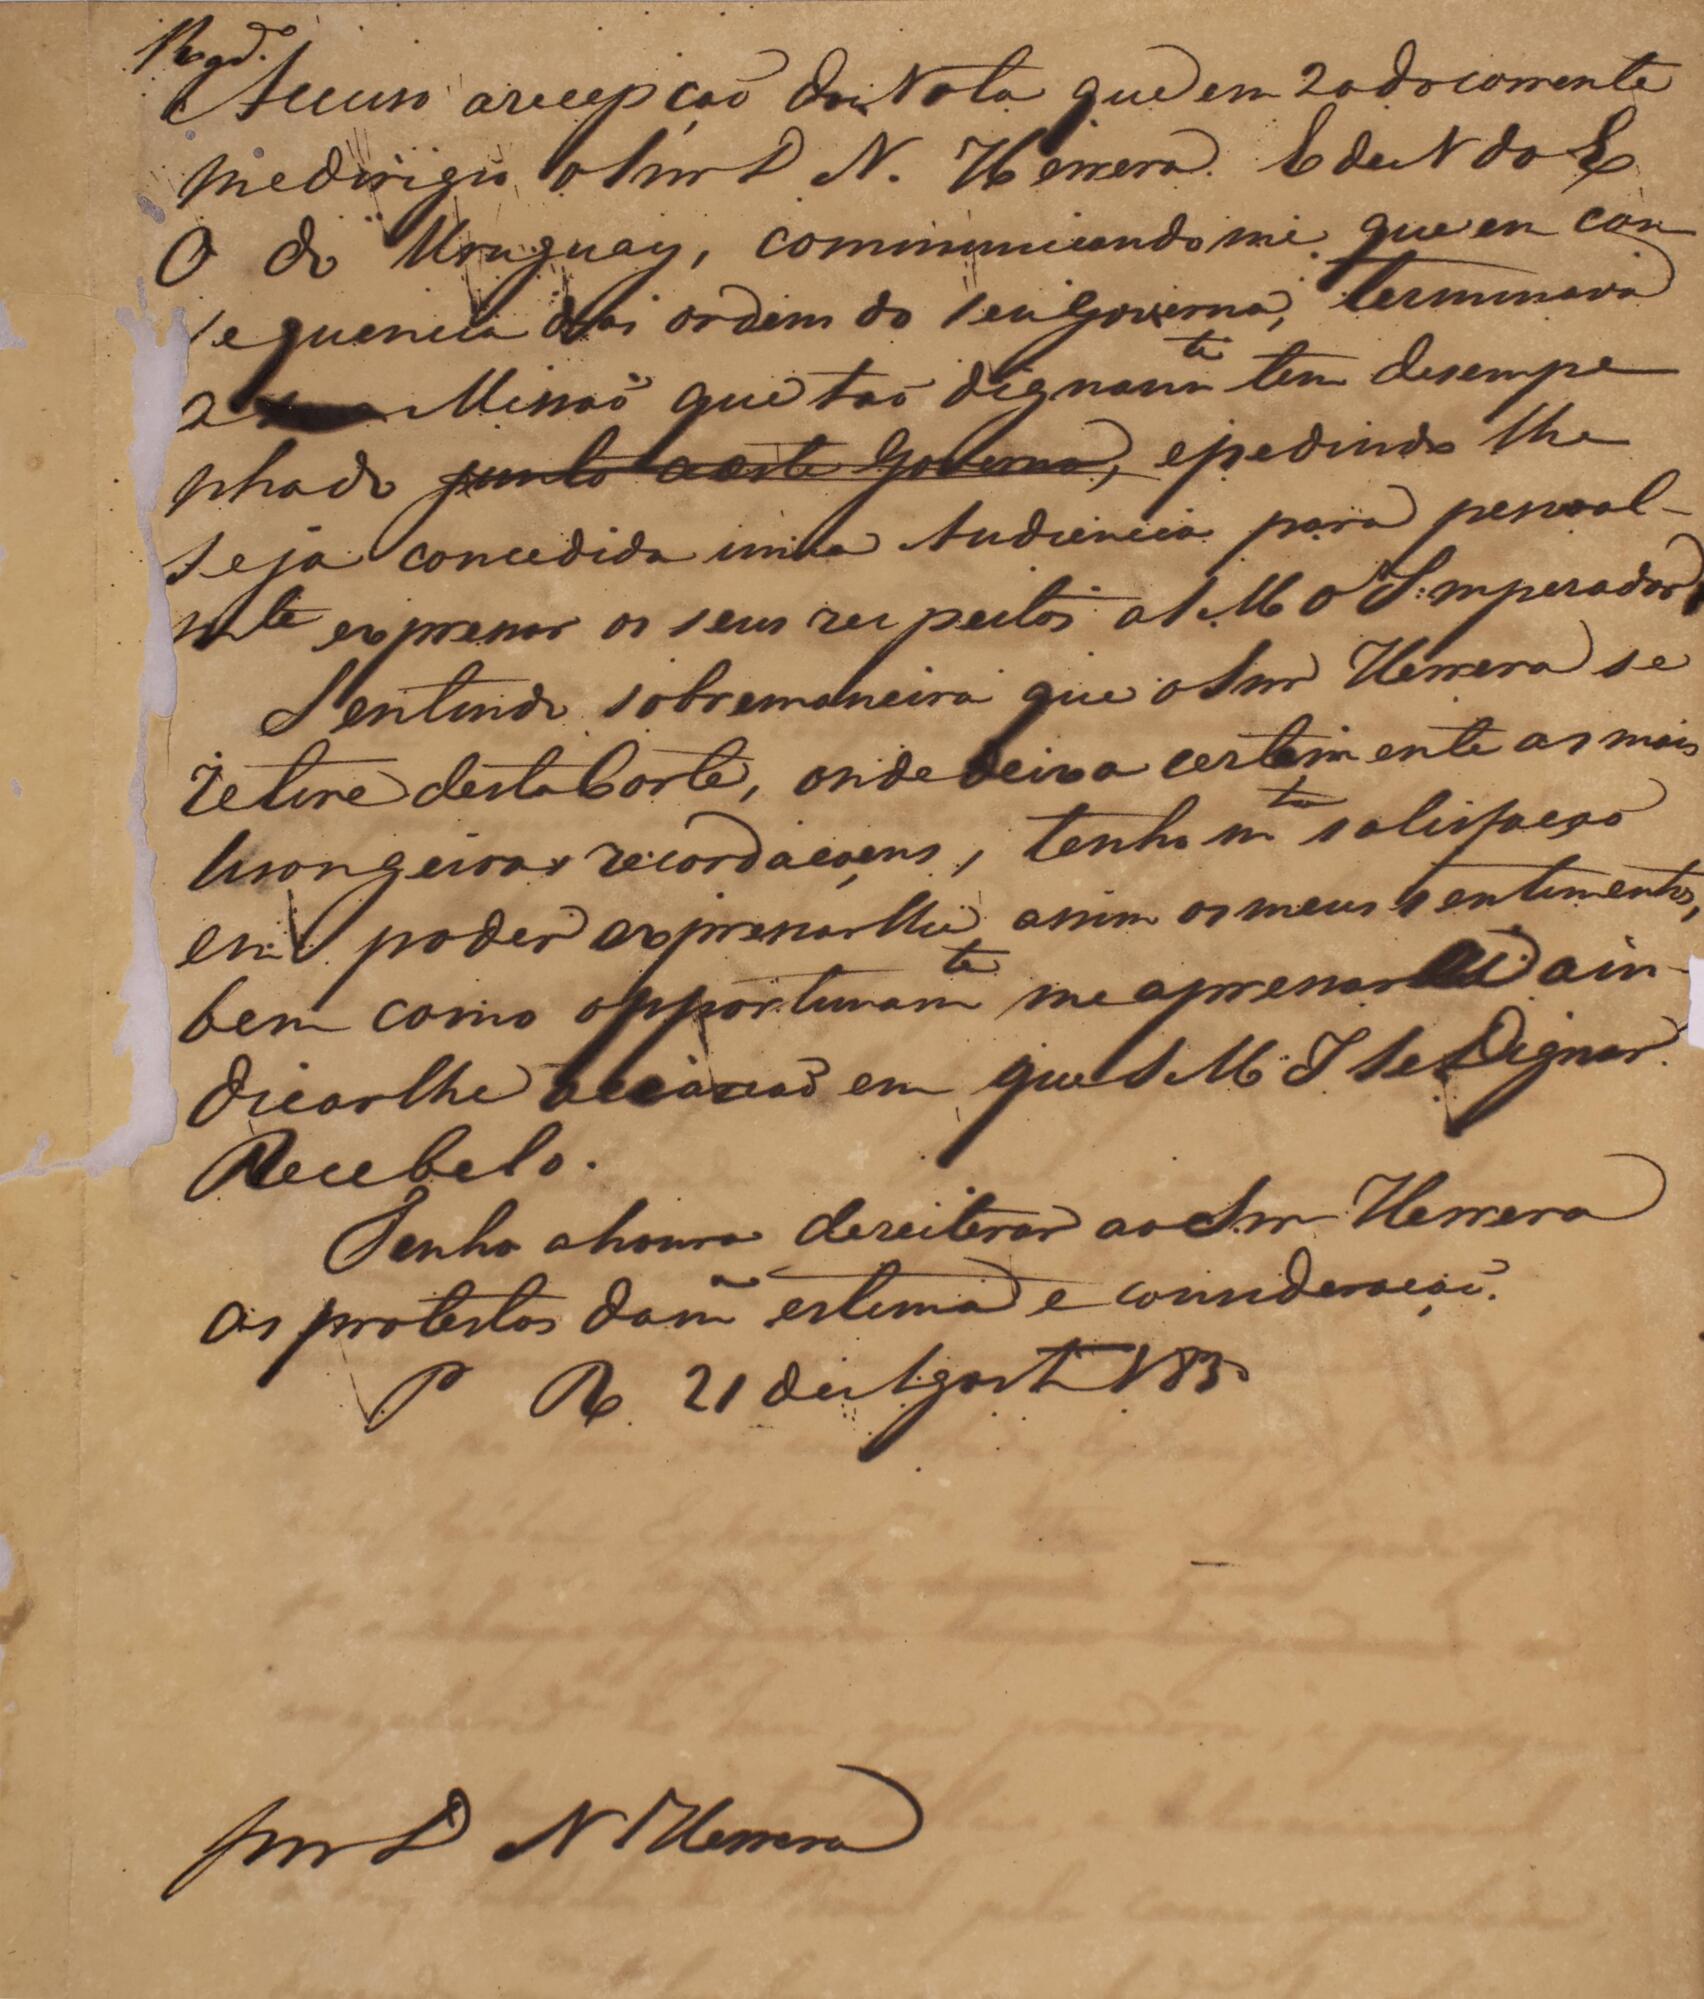 Regd.º
Accuso a recepção da Nota que em 20 do corrente
me dirigio o Snr D N. Herrera E de N do E
O do Uruguay, communicando me que em con
sequencia das ordens do seu Governo, terminava
a Missaõ que taõ dignamte tem desempe
nhado junto a este Governo, e pedindo lhe
seja concedida uma Audiencia para pessoal-
mte expressar os seus respeitos a S. M. O Imperador
Sentindo sobremaneira que o Snr Herrera se
retire desta Corte, onde deixa certamente as mais
lisongeiras recordaçoens, tenho mta satisfação
em poder expressar lhe assim os meus sentimentos,
bem como opportunamte me apressarei a in-
dicar lhe a occasiaõ em que S M I se Dignar
Recebelo.
Tenho a honra de reiterar ao Snr Herrera
os protestos da mª estima e consideraçaõ.
P R 21 de Agosto 183
Snr D N Herrera